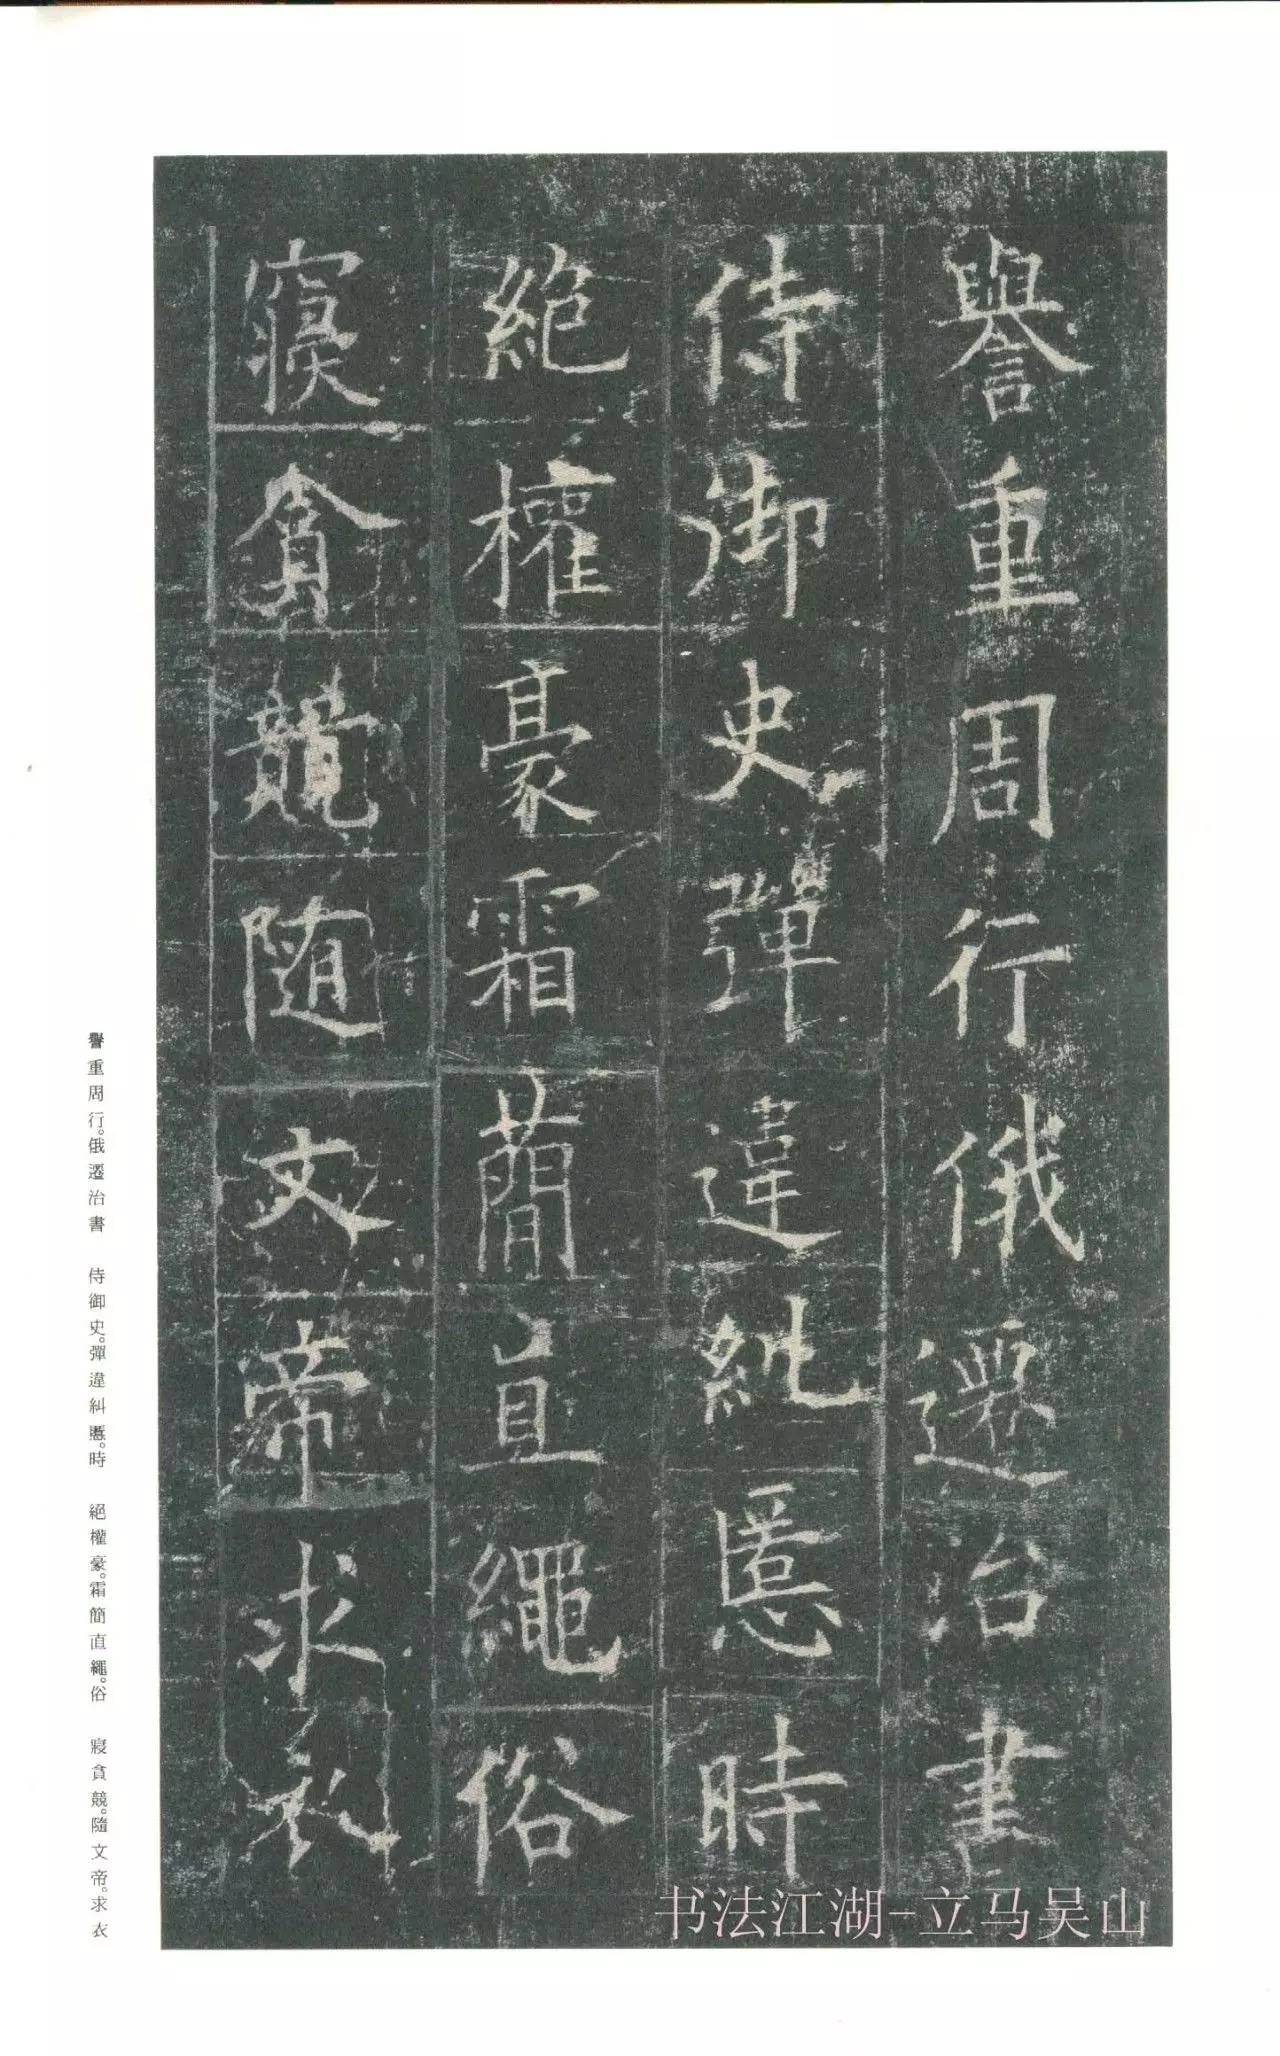 譽重周行俄遷治書
侍御史彈違糾慝時
絕權豪霜簡直繩俗
寢貪競隨文帝求衣
譽重周行。俄遷治書　侍御史。彈違糾慝。時　絕權豪。霜簡直繩。俗　寢貪競。隨文帝。求衣
书法江湖-立马吴山